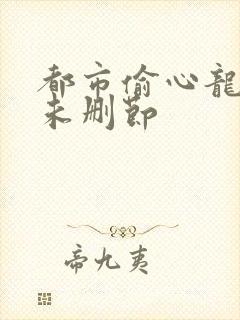 都市偷心龍
未删節
帝九夷